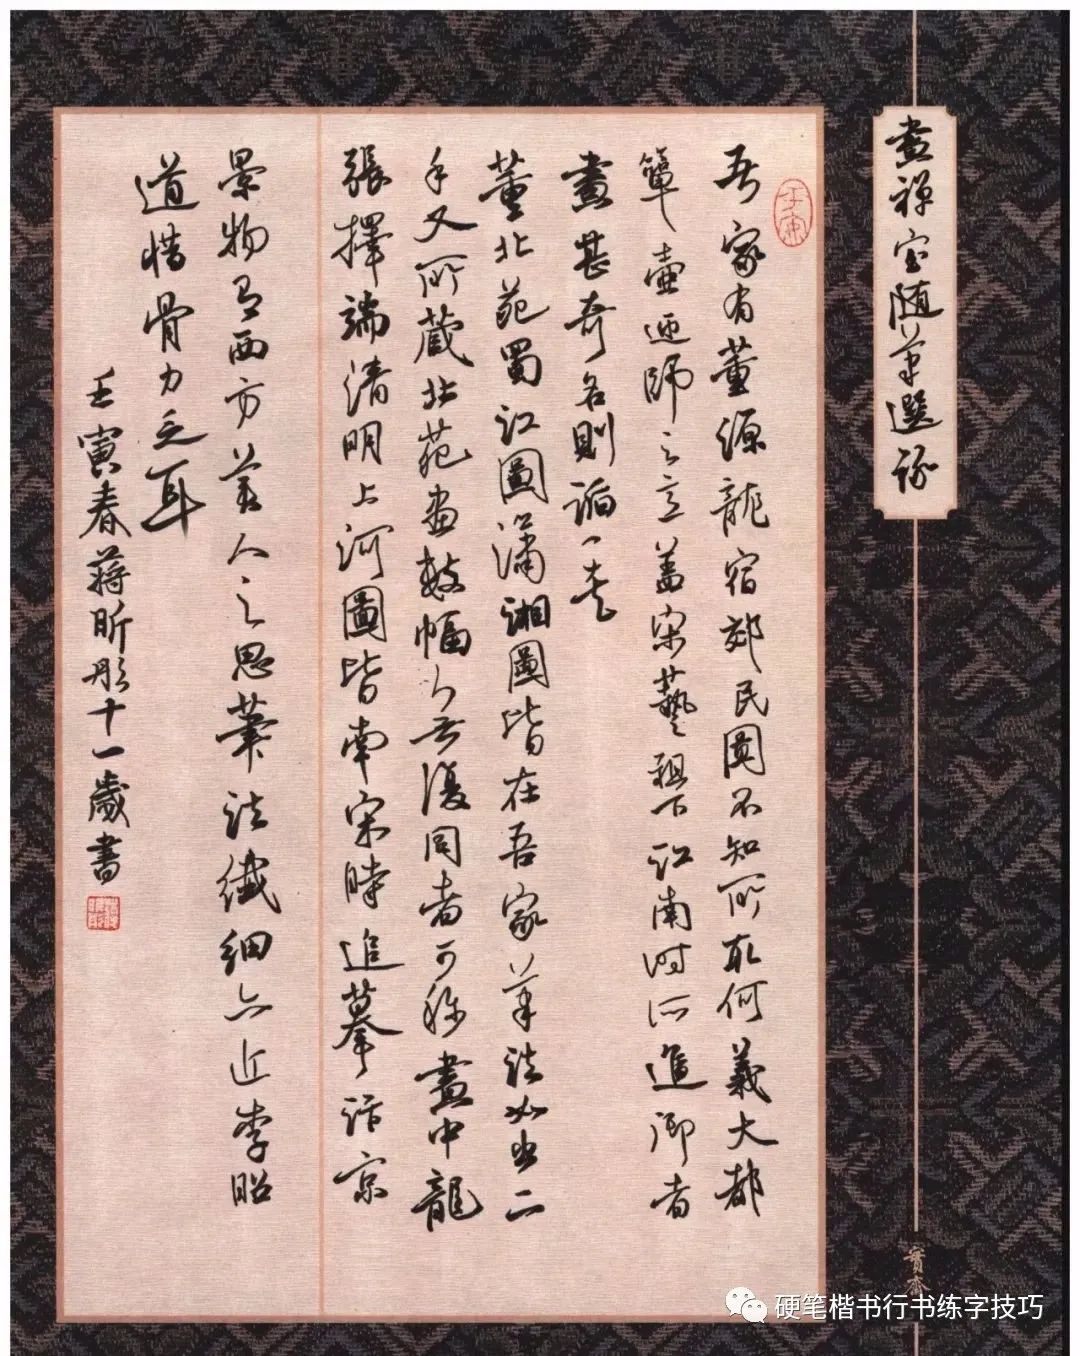 畫禪室随筆選錄
吾家有董源龍宿郊民圖不知所取何義大都
簞壺迎師之意蓋宋藝祖下江南時所進御者
畫甚奇名則諂矣
董北苑蜀江圖瀟湘圖皆在吾家筆法如出二
手又所藏北苑畫數幅亦無復同者可稱畫中龍
張擇端清明上河圖皆南宋時追摹汴京
景物有西方美人之思筆法纖細亦近李昭
道惜骨力乏耳
壬寅春蔣昕彤十一歲書
硬笔楷书行书练字技巧